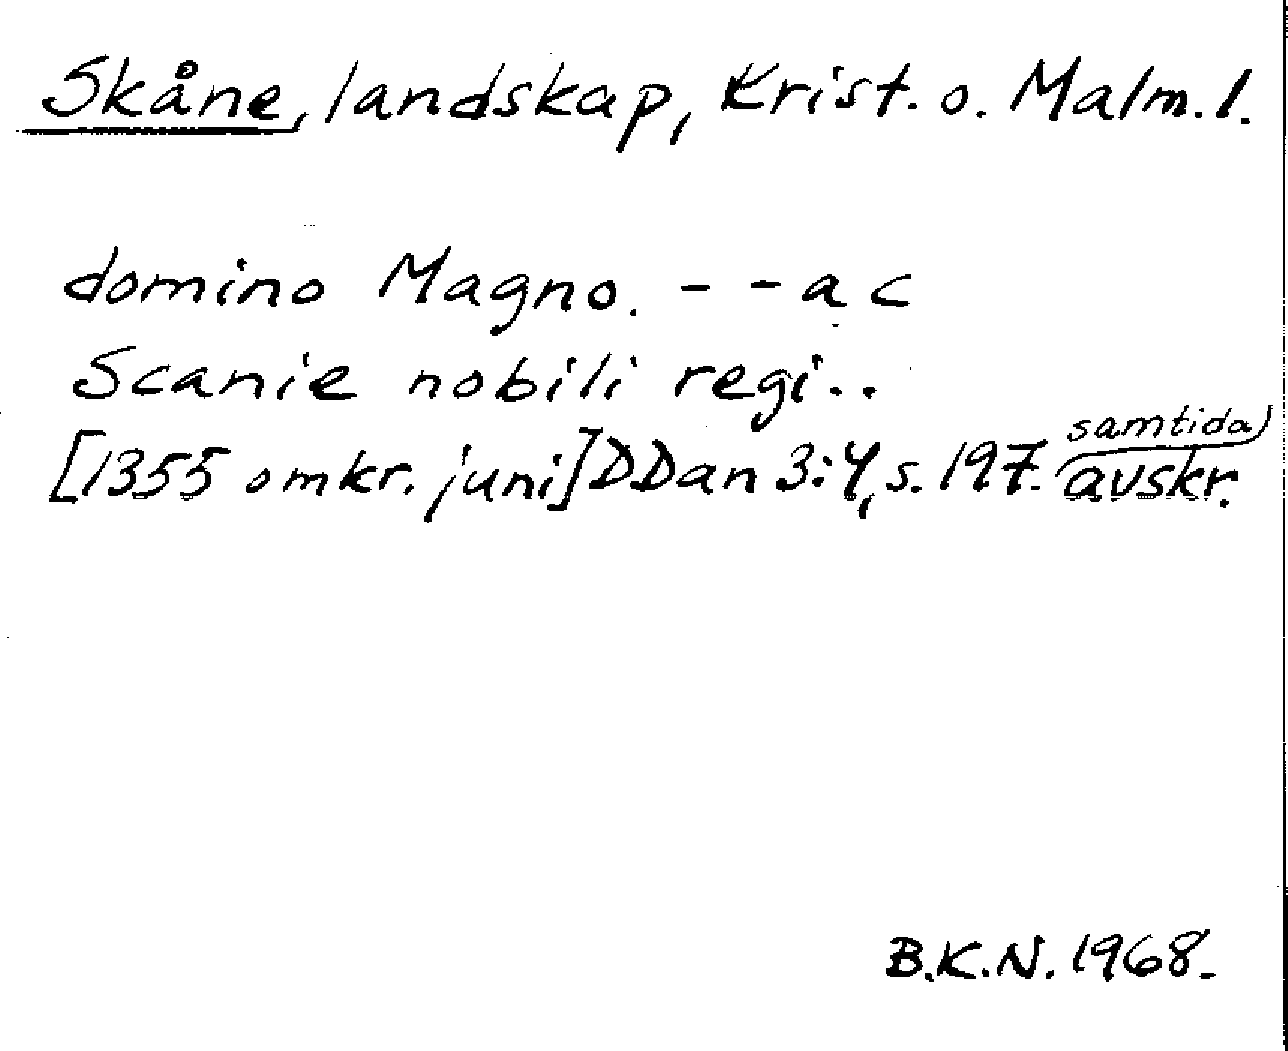 Skåne, landskap, Krist. o. Malm. l.
domino Magno. - - ac
Scanie nobili regi..
[1355 omkr. juni] DDan 3:4, s. 197. samtida avskr.
B.K.N. 1968.